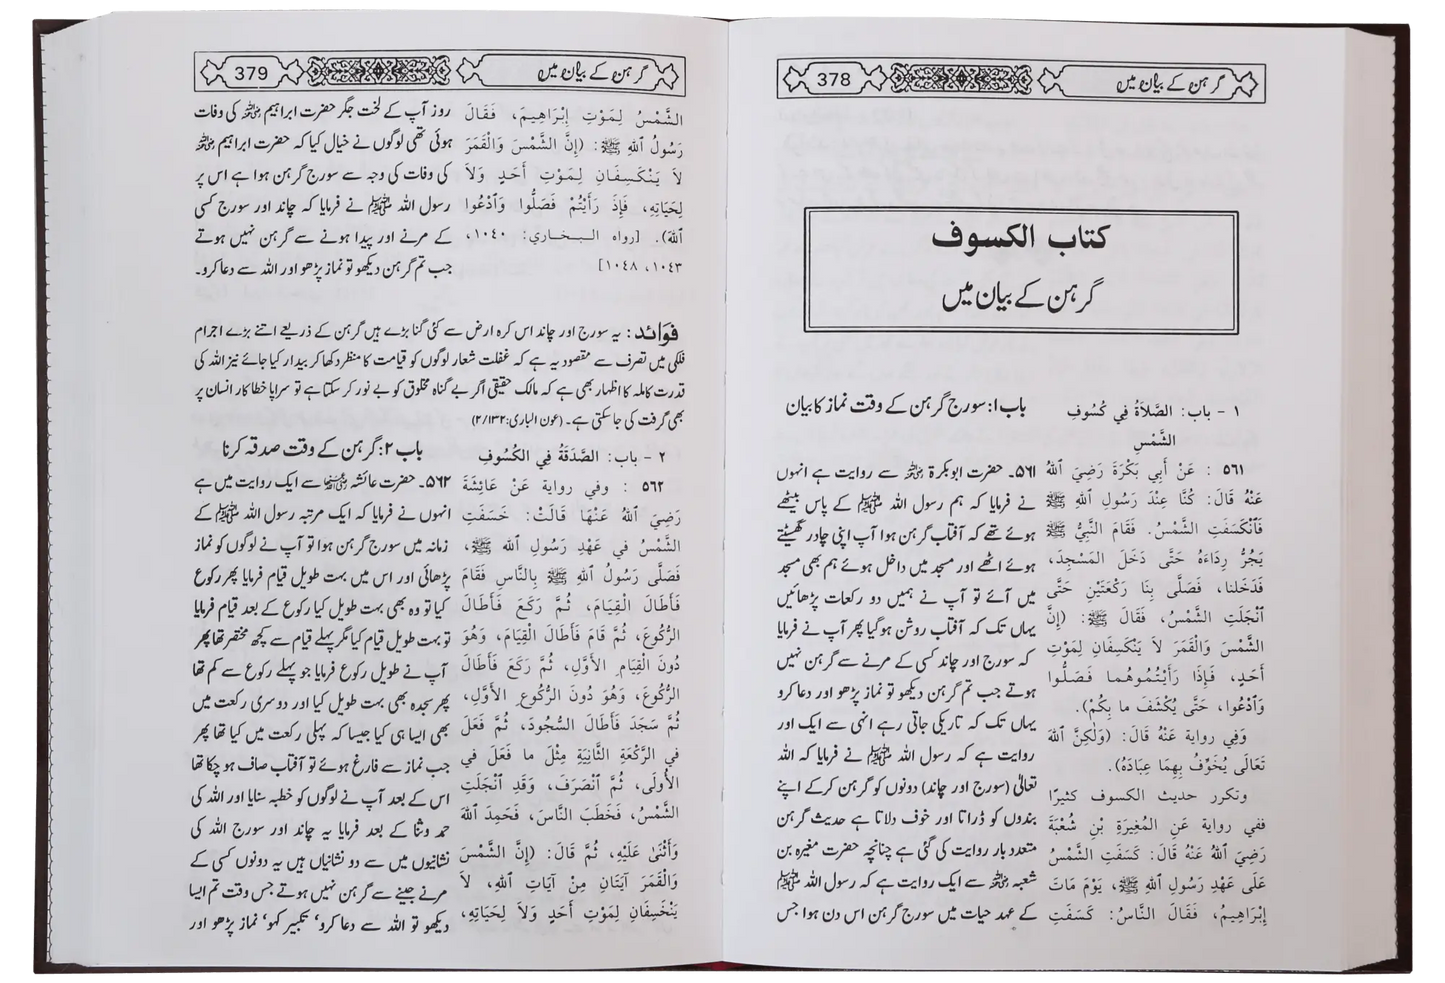 گرہن کے بیان میں
378
کتاب الکسوف
گرہن کے بیان میں
١ - باب: الصَّلاَةُ في كُسُوفِ
الشَّمْسِ
٥٦١ : عَنْ أَبي بَكْرَةَ رَضِيَ ٱللهُ
عَنْهُ قَالَ: كُنَّا عِنْدَ رَسُولِ ٱللهِ ﷺ
فَٱنْكَسَفَتِ الشَّمْسُ. فَقَامَ النَّبِيُّ ﷺ
يَجُرُّ رِدَاءَهُ حَتَّى دَخَلَ المَسْجِدَ،
فَدَخَلنا، فَصَلَّى بِنَا رَكْعَتَيْنِ حَتَّى
ٱنْجَلَتِ الشَّمْسُ، فَقَالَ ﷺ: (إِنَّ
الشَّمْسَ وَالْقَمَرَ لاَ يَنْكَسِفَانِ لِمَوْتِ
أَحَدٍ، فَإِذَا رَأَيْتُمُوهُما فَصَلُّوا
وَٱدْعُوا، حَتَّى يُكْشَفَ ما بِكُمْ).
وَفِي رواية عَنْهُ قَالَ: (وَلٰكِنَّ ٱللهَ
تَعَالَى يُخَوِّفُ بِهِمَا عِبَادَهُ).
وتكرر حديث الكسوف كثيرًا
ففي رواية عَنِ المُغِيرَةِ بْنِ شُعْبَةَ
رَضِيَ ٱللهُ عَنْهُ قَالَ: كَسَفَتِ الشَّمْسُ
عَلَى عَهْدِ رَسُولِ ٱللهِ ﷺ، يَوْمَ مَاتَ
إِبْرَاهِيمُ، فَقَالَ النَّاسُ: كَسَفَتِ
باب ۱: سورج گرہن کے وقت نماز کا بیان
۵۶۱۔ حضرت ابوبکرۃ رضی اللہ عنہ سے روایت ہے انہوں
نے فرمایا کہ ہم رسول اللہ ﷺ کے پاس بیٹھے
ہوئے تھے کہ آفتاب گرہن ہوا آپ اپنی چادر گھسیٹتے
ہوئے اٹھے اور مسجد میں داخل ہوئے ہم بھی مسجد
میں آئے تو آپ نے ہمیں دو رکعات پڑھائیں
یہاں تک کہ آفتاب روشن ہوگیا پھر آپ نے فرمایا
کہ سورج اور چاند کسی کے مرنے سے گرہن نہیں
ہوتے جب تم گرہن دیکھو تو نماز پڑھو اور دعا کرو
یہاں تک کہ تاریکی جاتی رہے انہی سے ایک اور
روایت ہے کہ رسول اللہ ﷺ نے فرمایا کہ اللہ
تعالیٰ (سورج اور چاند) دونوں کو گرہن کرکے اپنے
بندوں کو ڈراتا اور خوف دلاتا ہے حدیث گرہن
متعدد بار روایت کی گئی ہے چنانچہ حضرت مغیرہ بن
شعبہ رضی اللہ عنہ سے ایک روایت ہے کہ رسول اللہ ﷺ
کے عہد حیات میں سورج گرہن اس دن ہوا جس
گرہن کے بیان میں
379
الشَّمْسُ لِمَوْتِ إِبْرَاهِيمَ، فَقَالَ
رَسُولُ ٱللهِ ﷺ: (إِنَّ الشَّمْسَ وَالْقَمَرَ
لاَ يَنْكَسِفَانِ لِمَوْتِ أَحَدٍ وَلاَ
لِحَيَاتِهِ، فَإِذَ رَأَيْتُمْ فَصَلُّوا وَٱدْعُوا
ٱللهَ). [رواه البخاري: ١٠٤٠،
١٠٤٣، ١٠٤٨]
روز آپ کے لخت جگر حضرت ابراہیم رضی اللہ عنہ کی وفات
ہوئی تھی لوگوں نے خیال کیا کہ حضرت ابراہیم رضی اللہ عنہ
کی وفات کی وجہ سے سورج گرہن ہوا ہے اس پر
رسول اللہ ﷺ نے فرمایا کہ چاند اور سورج کسی
کے مرنے اور پیدا ہونے سے گرہن نہیں ہوتے
جب تم گرہن دیکھو تو نماز پڑھو اور اللہ سے دعا کرو۔
فوائد: یہ سورج اور چاند اس کرہ ارض سے کئی گنا بڑے ہیں گرہن کے ذریعے اتنے بڑے اجرام
فلکی میں تصرف سے مقصود یہ ہے کہ غفلت شعار لوگوں کو قیامت کا منظر دکھا کر بیدار کیا جائے نیز اللہ کی
قدرت کاملہ کا اظہار بھی ہے کہ مالک حقیقی اگر بے گناہ مخلوق کو بے نور کر سکتا ہے تو سراپا خطا کار انسان پر
بھی گرفت کی جا سکتی ہے۔ (عون الباری: ۲/۱۳۲)
٢ - باب: الصَّدَقَةُ فِي الكُسُوفِ
٥٦٢ : وفي رواية عَنْ عَائِشَةَ
رَضِيَ ٱللهُ عَنْهَا قَالَتْ: خَسَفَتِ
الشَّمْسُ في عَهْدِ رَسُولِ ٱلله ﷺ،
فَصَلَّى رَسُولُ ٱللهِ ﷺ بِالنَّاسِ فَقَامَ
فَأَطَالَ الْقِيَامَ، ثُمَّ رَكَعَ فَأَطَالَ
الرُّكُوعَ، ثُمَّ قَامَ فَأَطَالَ الْقِيَامَ، وَهُوَ
دُونَ الْقِيَامِ الأَوَّلِ، ثُمَّ رَكَعَ فَأَطَالَ
الرُّكُوعَ، وَهُوَ دُونَ الرُّكُوعِ الأَوَّلِ،
ثُمَّ سَجَدَ فَأَطَالَ السُّجُودَ، ثُمَّ فَعَلَ
في الرَّكْعَةِ الثَّانِيَةِ مِثْلَ ما فَعَلَ في
الأُولَى، ثُمَّ ٱنْصَرَفَ، وَقَدِ ٱنْجَلَتِ
الشَّمْسُ، فَخَطَبَ النَّاسَ، فَحَمِدَ ٱللهَ
وَأَثْنَى عَلَيْهِ، ثُمَّ قَالَ: (إِنَّ الشَّمْسَ
وَالْقَمَرَ آيَتَانِ مِنْ آيَاتِ ٱللهِ، لاَ
يَنْخَسِفَانِ لِمَوْتِ أَحَدٍ وَلاَ لِحَيَاتِهِ،
باب ۲: گرہن کے وقت صدقہ کرنا
۵۶۲۔ حضرت عائشہ رضی اللہ عنہا سے ایک روایت میں ہے
انہوں نے فرمایا کہ ایک مرتبہ رسول اللہ ﷺ کے
زمانہ میں سورج گرہن ہوا تو آپ نے لوگوں کو نماز
پڑھائی اور اس میں بہت طویل قیام فرمایا پھر رکوع
کیا تو وہ بھی بہت طویل کیا رکوع کے بعد قیام فرمایا
تو بہت طویل قیام کیا مگر پہلے قیام سے کچھ مختصر تھا پھر
آپ نے طویل رکوع فرمایا جو پہلے رکوع سے کم تھا
پھر سجدہ بھی بہت طویل کیا اور دوسری رکعت میں
بھی ایسا ہی کیا جیسا کہ پہلی رکعت میں کیا تھا پھر
جب نماز سے فارغ ہوئے تو آفتاب صاف ہو چکا تھا
اس کے بعد آپ نے لوگوں کو خطبہ سنایا اور اللہ کی
حمد وثنا کے بعد فرمایا یہ چاند اور سورج اللہ کی
نشانیوں میں سے دو نشانیاں ہیں یہ دونوں کسی کے
مرنے جینے سے گرہن نہیں ہوتے جس وقت تم ایسا
دیکھو تو اللہ سے دعا کرو‘ تکبیر کہو‘ نماز پڑھو اور